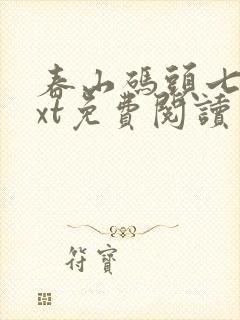 春山碼頭七
xt免費閱讀
符寶